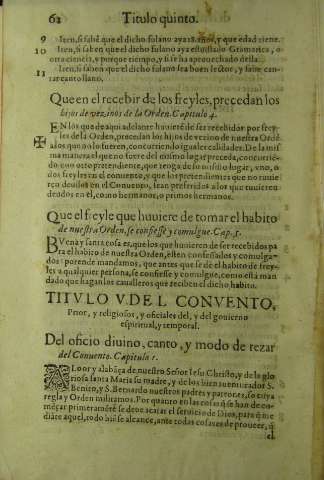 62 Titulo quinto.
9 Iten, si sabē que el dicho fulano aya 18. años, y que edad tiene.
10 Iten, si saben que el dicho fulano aya estudiado Gramatica, o
otra ciencia, y porque tiempo, y si se ha aprouechado della.
11 Iten, si saben que el dicho fulano sea buen lector, y sabe can-
tar canto llano.
Que en el recebir de los freyles, precedan los
hijos de vezinos de la Orden. Capitulo 4.
EN los que de aqui adelante huuierē de ser recebidos por frey-
les de la Orden, precedan los hijos de vezino de nuestra Ordē
a los que no lo fueren, concurriendo iguales calidades. De la mis
ma manera el que no fuere del mismo lugar preceda, concurriē-
do con otro pretendiente, que tenga de su mismo lugar, vno, o
dos freyles en el conuento, y que los pretendientes que no tuuie
ren deudos en el Conuento, sean preferidos a los que tuuieren
deudos en el, como hermanos, o primos hermanos.
Que el freyle que huuiere de tomar el habito
de nuestra Orden, se confiesse y comulgue. Cap. 5.
BVena y santa cosa es, que los que huuieren de ser recebidos pa
ra el habito de nuestra Orden, esten confessados y comulga-
dos: porende mandamos, que antes que se dè el habito de frey-
les a qualquier persona, se confiesse y comulgue, como està man
dado que hagan los caualleros que reciben el dicho habito.
TITVLO V. DEL CONVENTO,
Prior, y religiosos, y oficiales del, y del gouierno
espiritual, y temporal.
Del oficio diuino, canto, y modo de rezar
del Conuento. Capitulo 1.
A Loor y alabāça de nuestro Señor Iesu Christo, y de la glo
riosa santa Maria su madre, y de los bienauenturados S.
Benito, y S. Bernardo nuestros padres y patrones, so cuya
regla y Orden militamos. Por quanto en las cosas q̄ se han de co-
mēçar primeramēte se deue acatar el seruicio de Dios, para q̄ me
diāte aquel, todo biē se alcance, ante todas cosas de proueer, q̄
el